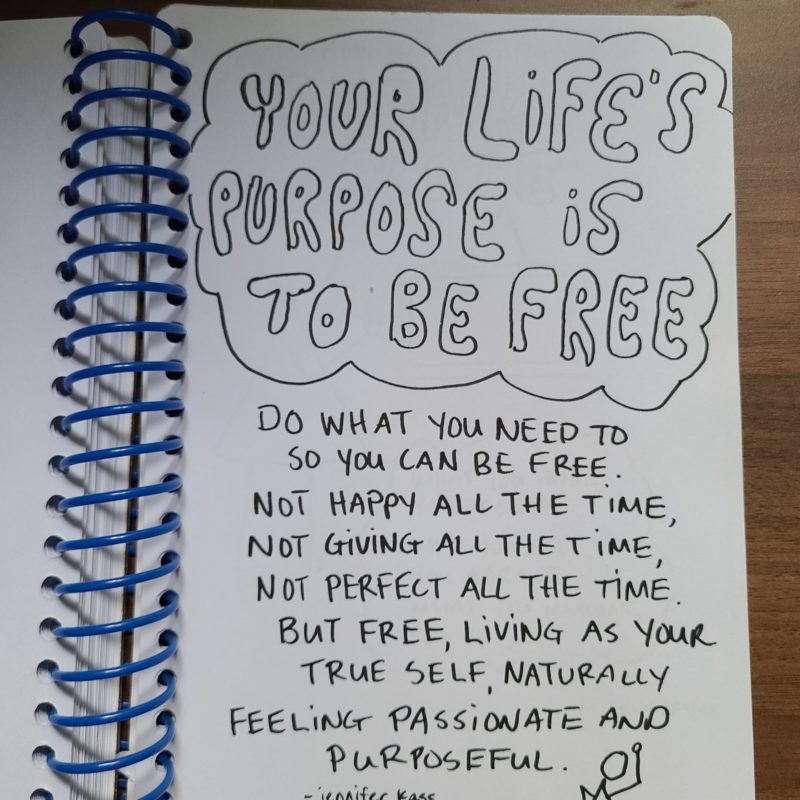 YOUR LiFE'S
PURPOSE iS
TO BE FREE
DO WHAT YOU NEED TO
SO YOU CAN BE FREE.
NOT HAPPY ALL THE TiME,
NOT GIVING ALL THE TiME,
NOT PERFECT ALL THE TIME.
BUT FREE, LIVING AS YOUR
TRUE SELF, NATURALLY
FEELING PASSIONATE AND
PURPOSEFUL.
- jennifer kass